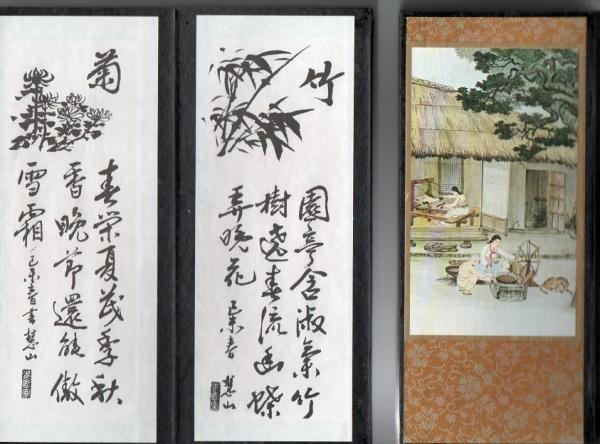 菊
春栄夏茂季秋
香晚節還能傲
雪霜 己未春書慧山
竹
園亭含淑氣竹
樹遶春流幽蝶
弄晚花 己未春 慧山